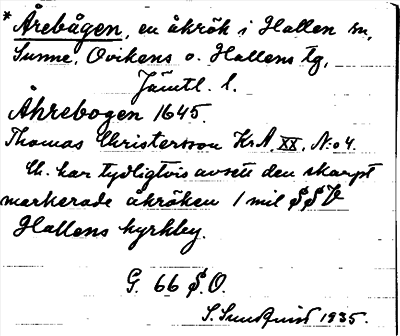 * Årebågen, en åkrök i Hallen sn,
Sunne, Ovikens o. Hallens tg,
Jämtl. l.
Åhrebogen 1645.
Thomas Christersson KrA. XX. N:o 4.
Ch. har tydligtvis avsett den skarpt
markerade åkröken 1 mil
Hallens kyrkby.
G. 66 S.O.
S. Sundquist 1935.